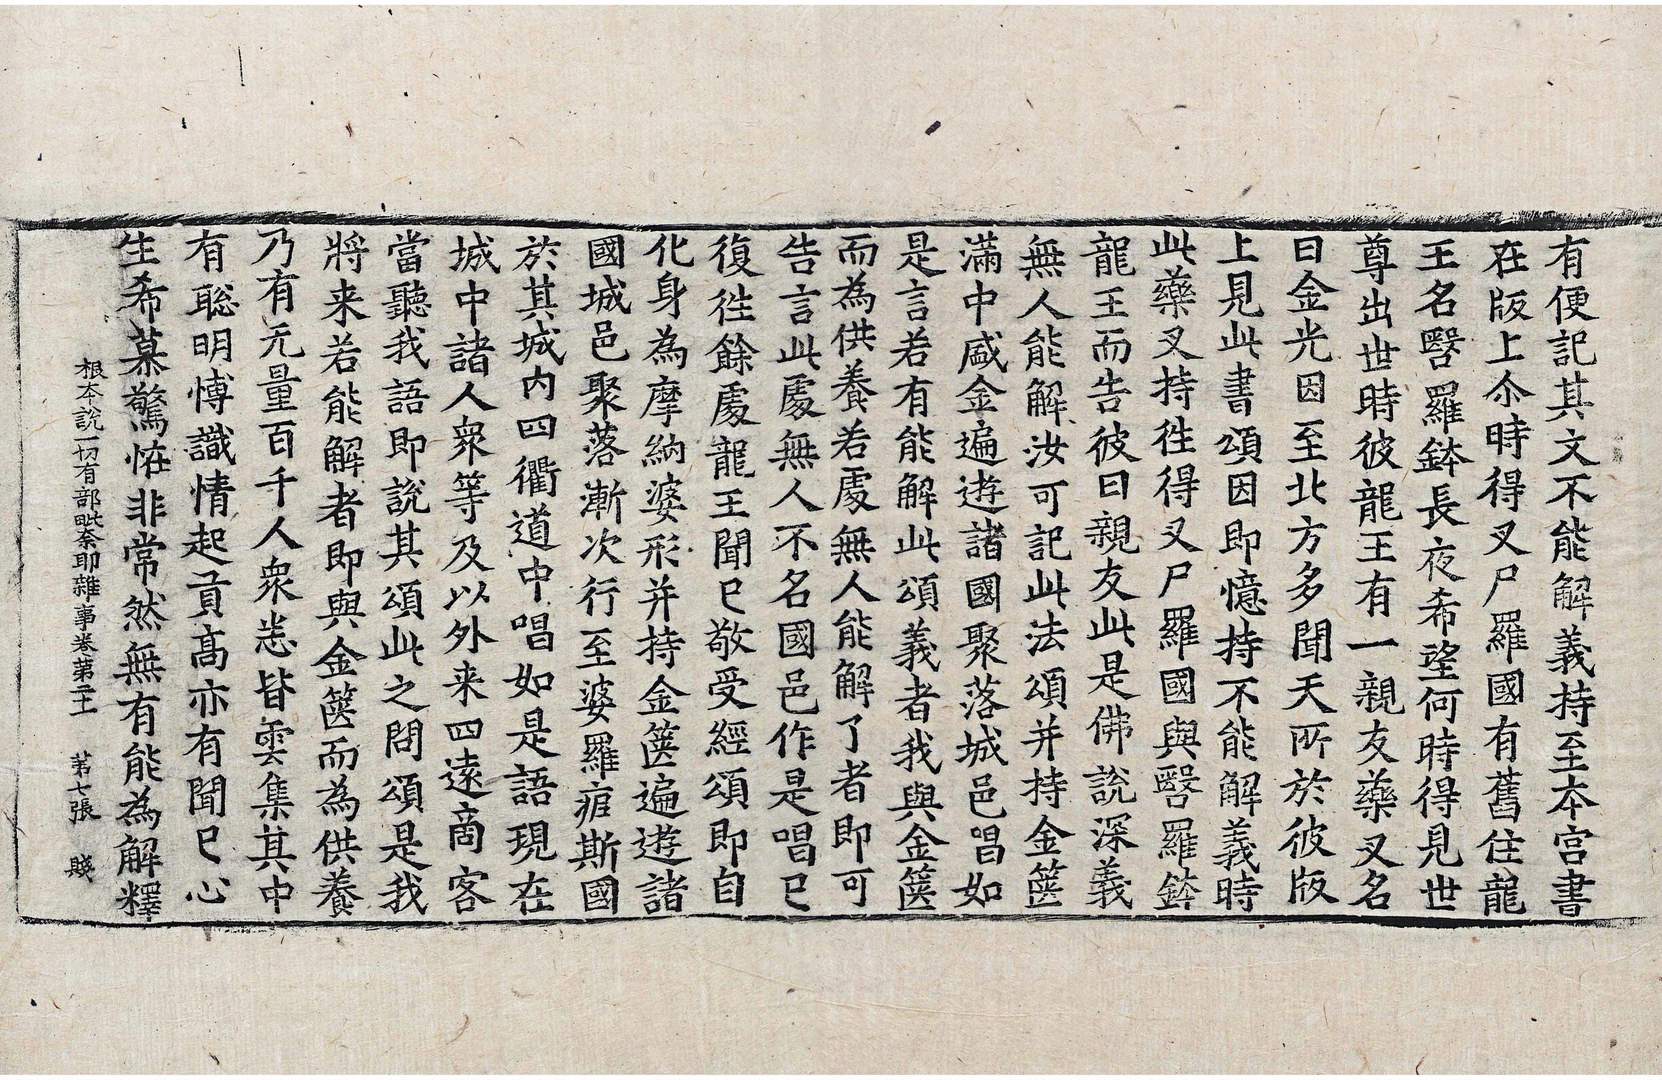 有便記其文不能解義持至本宮書
在版上尒時得叉尸羅國有舊住龍
王名醫羅鉢長夜希望何時得見世
尊出世時彼龍王有一親友藥叉名
曰金光因至北方多聞天所於彼版
上見此書頌因即憶持不能解義時
此藥叉持徃得叉尸羅國與醫羅鉢
龍王而告彼曰親友此是佛說深義
無人能解汝可記此法頌并持金篋
滿中咸金遍遊諸國聚落城邑唱如
是言若有能解此頌義者我與金篋
而為供養若處無人能解了者即可
告言此處無人不名國邑作是唱已
復徃餘處龍王聞已敬受經頌即自
化身為摩納婆形并持金篋遍遊諸
國城邑聚落漸次行至婆羅痆斯國
於其城內四衢道中唱如是語現在
城中諸人衆等及以外来四遠商客
當聽我語即說其頌此之問頌是我
將来若能解者即與金篋而為供養
乃有无量百千人衆悉皆雲集其中
有聡明愽識情起貢髙亦有聞已心
生希慕驚恠非常然無有能為解釋
根本說一切有部毗奈耶雜事卷第二十一 第七張 賤